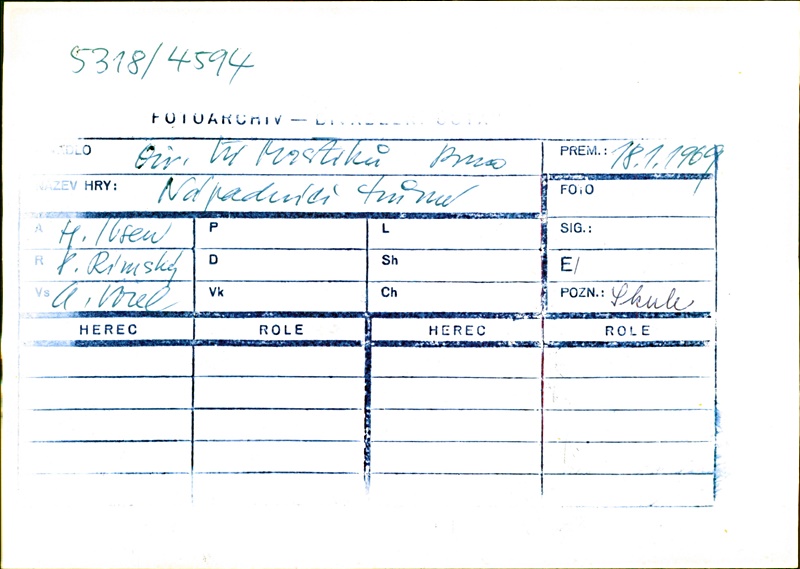 5318/4594
FOTOARCHIV —
Div. bří Mrštíků Brno PREM.: 18.1.1969
NÁZEV HRY: Nápadníci trůnu FOTO
A H. Ibsen P L SIG.:
R P. Rímský D Sh E/
Vs A. Vorel Vk Ch POZN.: Skule
HEREC ROLE HEREC ROLE